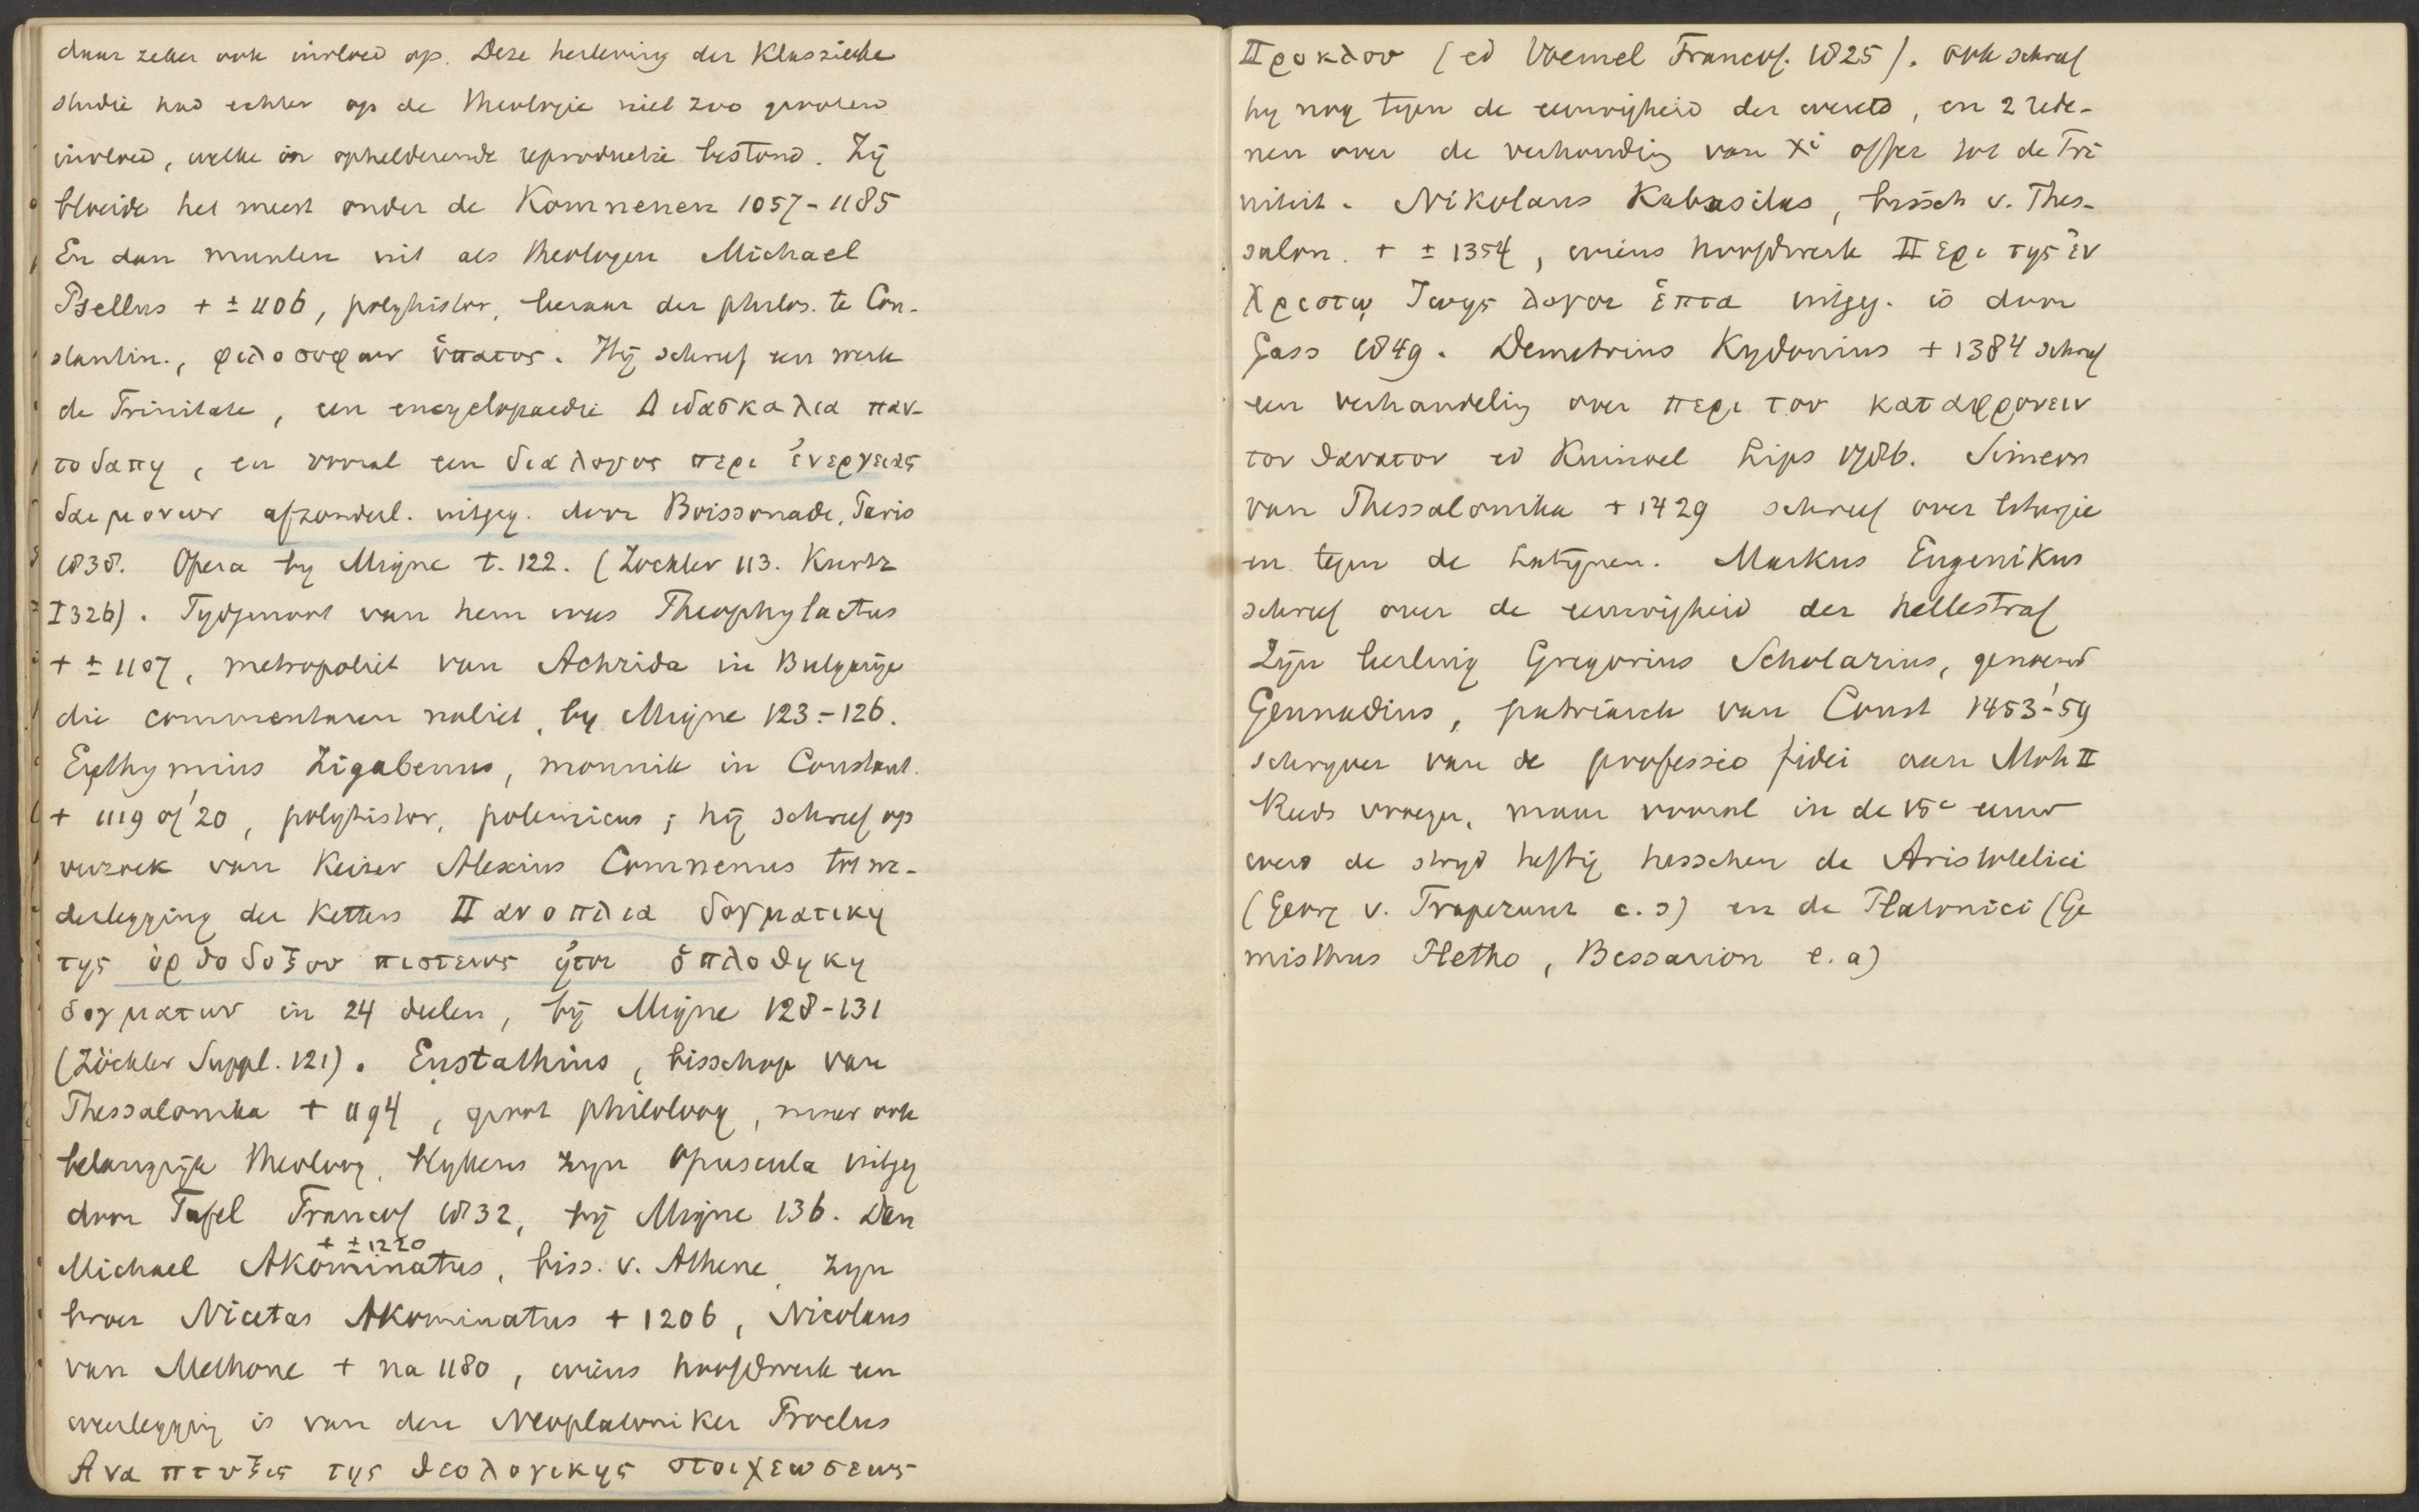 daar zeker ook invloed op. Deze herleving der Klassieke
studie had echter op de theologie niet zoo grooten
invloed, welke in ophelderende reproductie bestond. Zij
bloeide het meest onder de Komnenen 1057-1185
En dan munten uit als theologen Michael
Psellus + ± 1106, polyhistor, leeraar der philos. te Con-
stantin., φιλοσοφων ὑπατος. Hij schreef een werk
de Trinitate, een encyclopaedie Διδασκαλια παν-
τοδαπη, en vooral een διαλογος περι ἐνεργειας
δαιμονων afzonderl. uitgeg. door Boissonade, Paris
1838. Opera by Migne t. 122. (Zöckler 113. Kurtz
I 326). Tydgenoot van hem was Theophylactus
+ ± 1107, metropoliet van Achrida in Bulgarije
die commentaren naliet, by Migne 123-126.
Euthymius Zigabenus, monnik in Constant.
+ 1119 of '20, polyhistor, polemicus; hij schreef op
verzoek van Keizer Alexius Comnenus ter we-
derlegging der Ketters Πανοπλια δογματικη
της ὀρθοδοξου πιστεως ἠτοι ὁπλοθηκη
δογματων in 24 deelen, bij Migne 128-131
(Zöckler Suppl. 121). Eustathius, bisschop van
Thessalonika + 1194, groot philoloog, maar ook
belangrijk theoloog, blykens zyn Opuscula uitgeg
door Tafel Francof 1832, bij Migne 136. Dan
+ ± 1220
Michael Akominatus, biss. v. Athene, zyn
broer Nicetas Akominatus + 1206, Nicolaus
van Methone + na 1180, wiens hoofdwerk een
weerlegging is van den Neoplatoniker Proclus
Αναπτυξις της θεολογικης στοιχεωσεως
Προκλου (ed Voemel Francof. 1825). ook schreef
hy nog tegen de eeuwigheid der wereld, en 2 rede-
nen over de verhouding van Xi offer tot de Tri
niteit. Nikolaus Kabasilas, bissch v. Thes-
salon. + ± 1354, wiens hoofdwerk Περι της ἐν
Χριστῳ ζωης λογοι ἑπτα uitgeg. is door
Gass 1849. Demetrius Kydonius + 1384 schreef
een verhandeling over περι του καταφρονειν
τον θανατον ed Kuinoel Lips 1786. Simeon
van Thessalonika + 1429 schreef over liturgie
en tegen de Latynen. Markus Eugenikus
schreef over de eeuwigheid der hellestraf
Zijn leerling Gregorius Scholarius, genaemd
Gennadius, patriarch van Const 1453-'59
schryver van de professio fidei aan Moh II
Reeds vroeger, maar vooral in de 15e eeuw
werd de stryd heftig tusschen de Aristotelici
(Georg v. Trapezunt e. a) en de Platonici (Ge
misthus Pletho, Bessarion e. a)